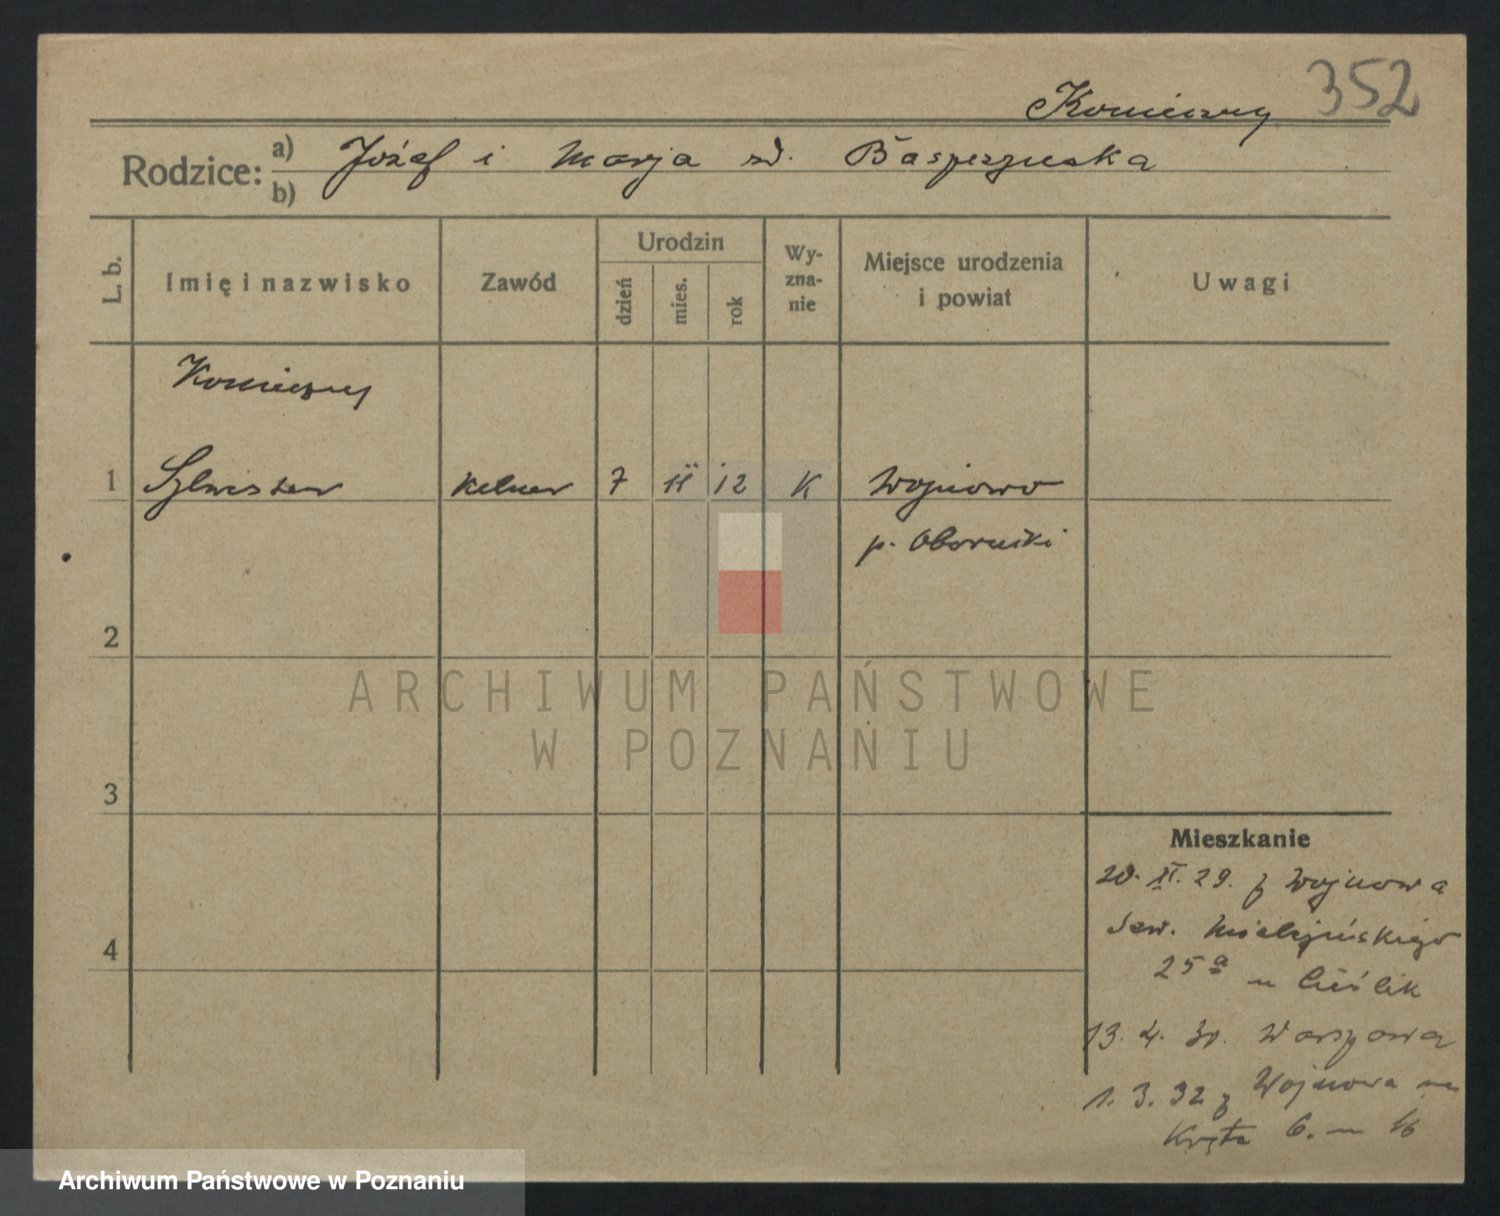 352
Konieczny
Rodzice: a) Józef i Marja zd.
b)
L. b. Imię i nazwisko Zawód Urodzin dzień mies. rok Wyznanie Miejsce urodzenia i powiat Uwagi
Konieczny
1 Sylwester kelner 7 11 12 K Wojnowo
p. Oborniki
2
ARCHIWUM PAŃSTWOWE
W POZNANIU
3
Mieszkanie
20. XI. 29. z Wojnowa
Sew. Mielżyńskiego
4
25a u Cieślik
13. 4. 30. Warszawa
1. 3. 32 z Wojnowa na
Kręta 6. m 16
Archiwum Państwowe w Poznaniu